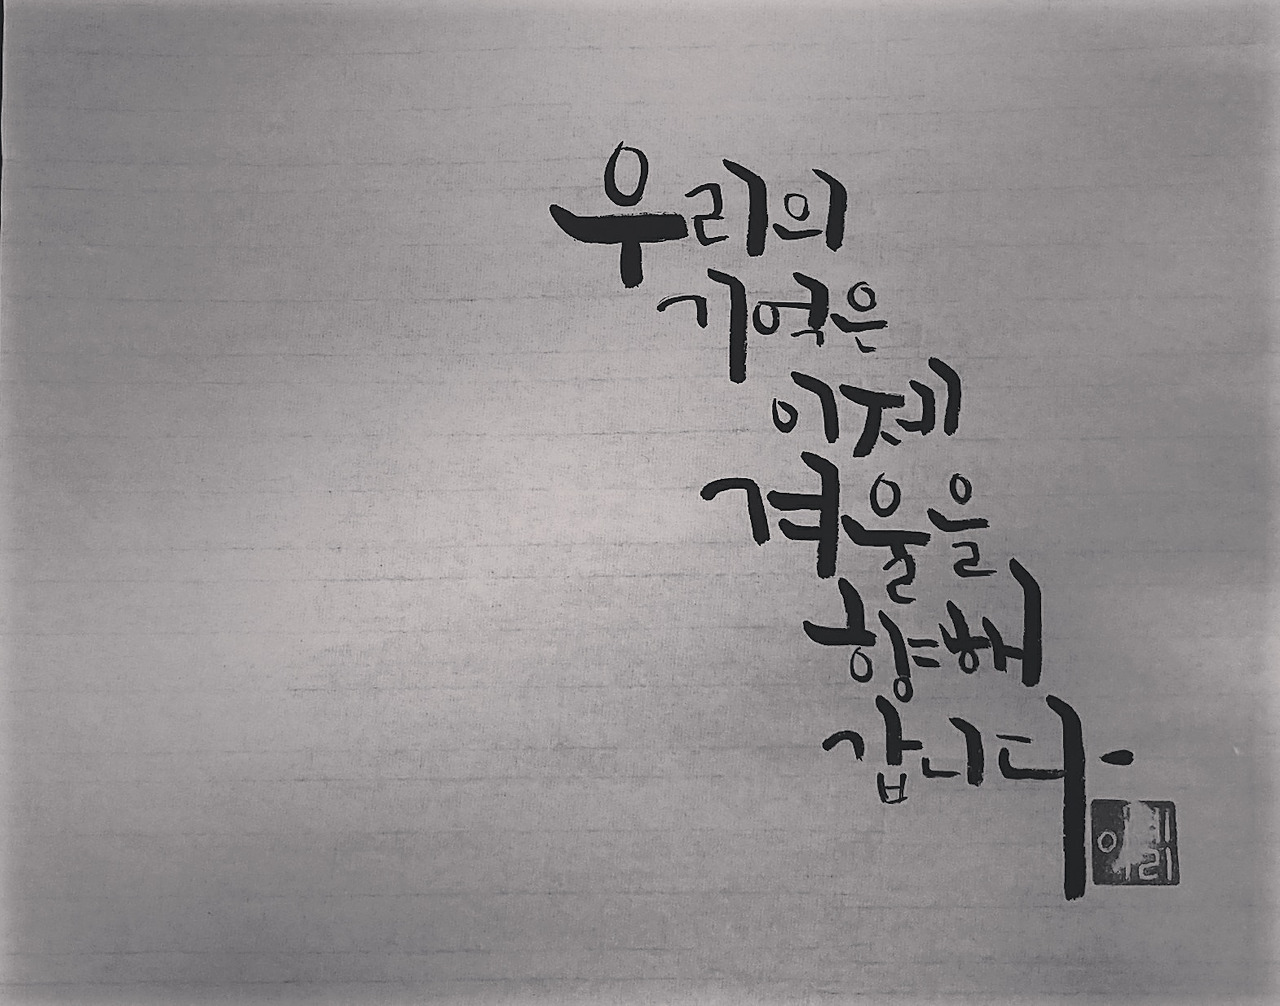 우리의
기억은
이제
겨울을
향해
갑니다